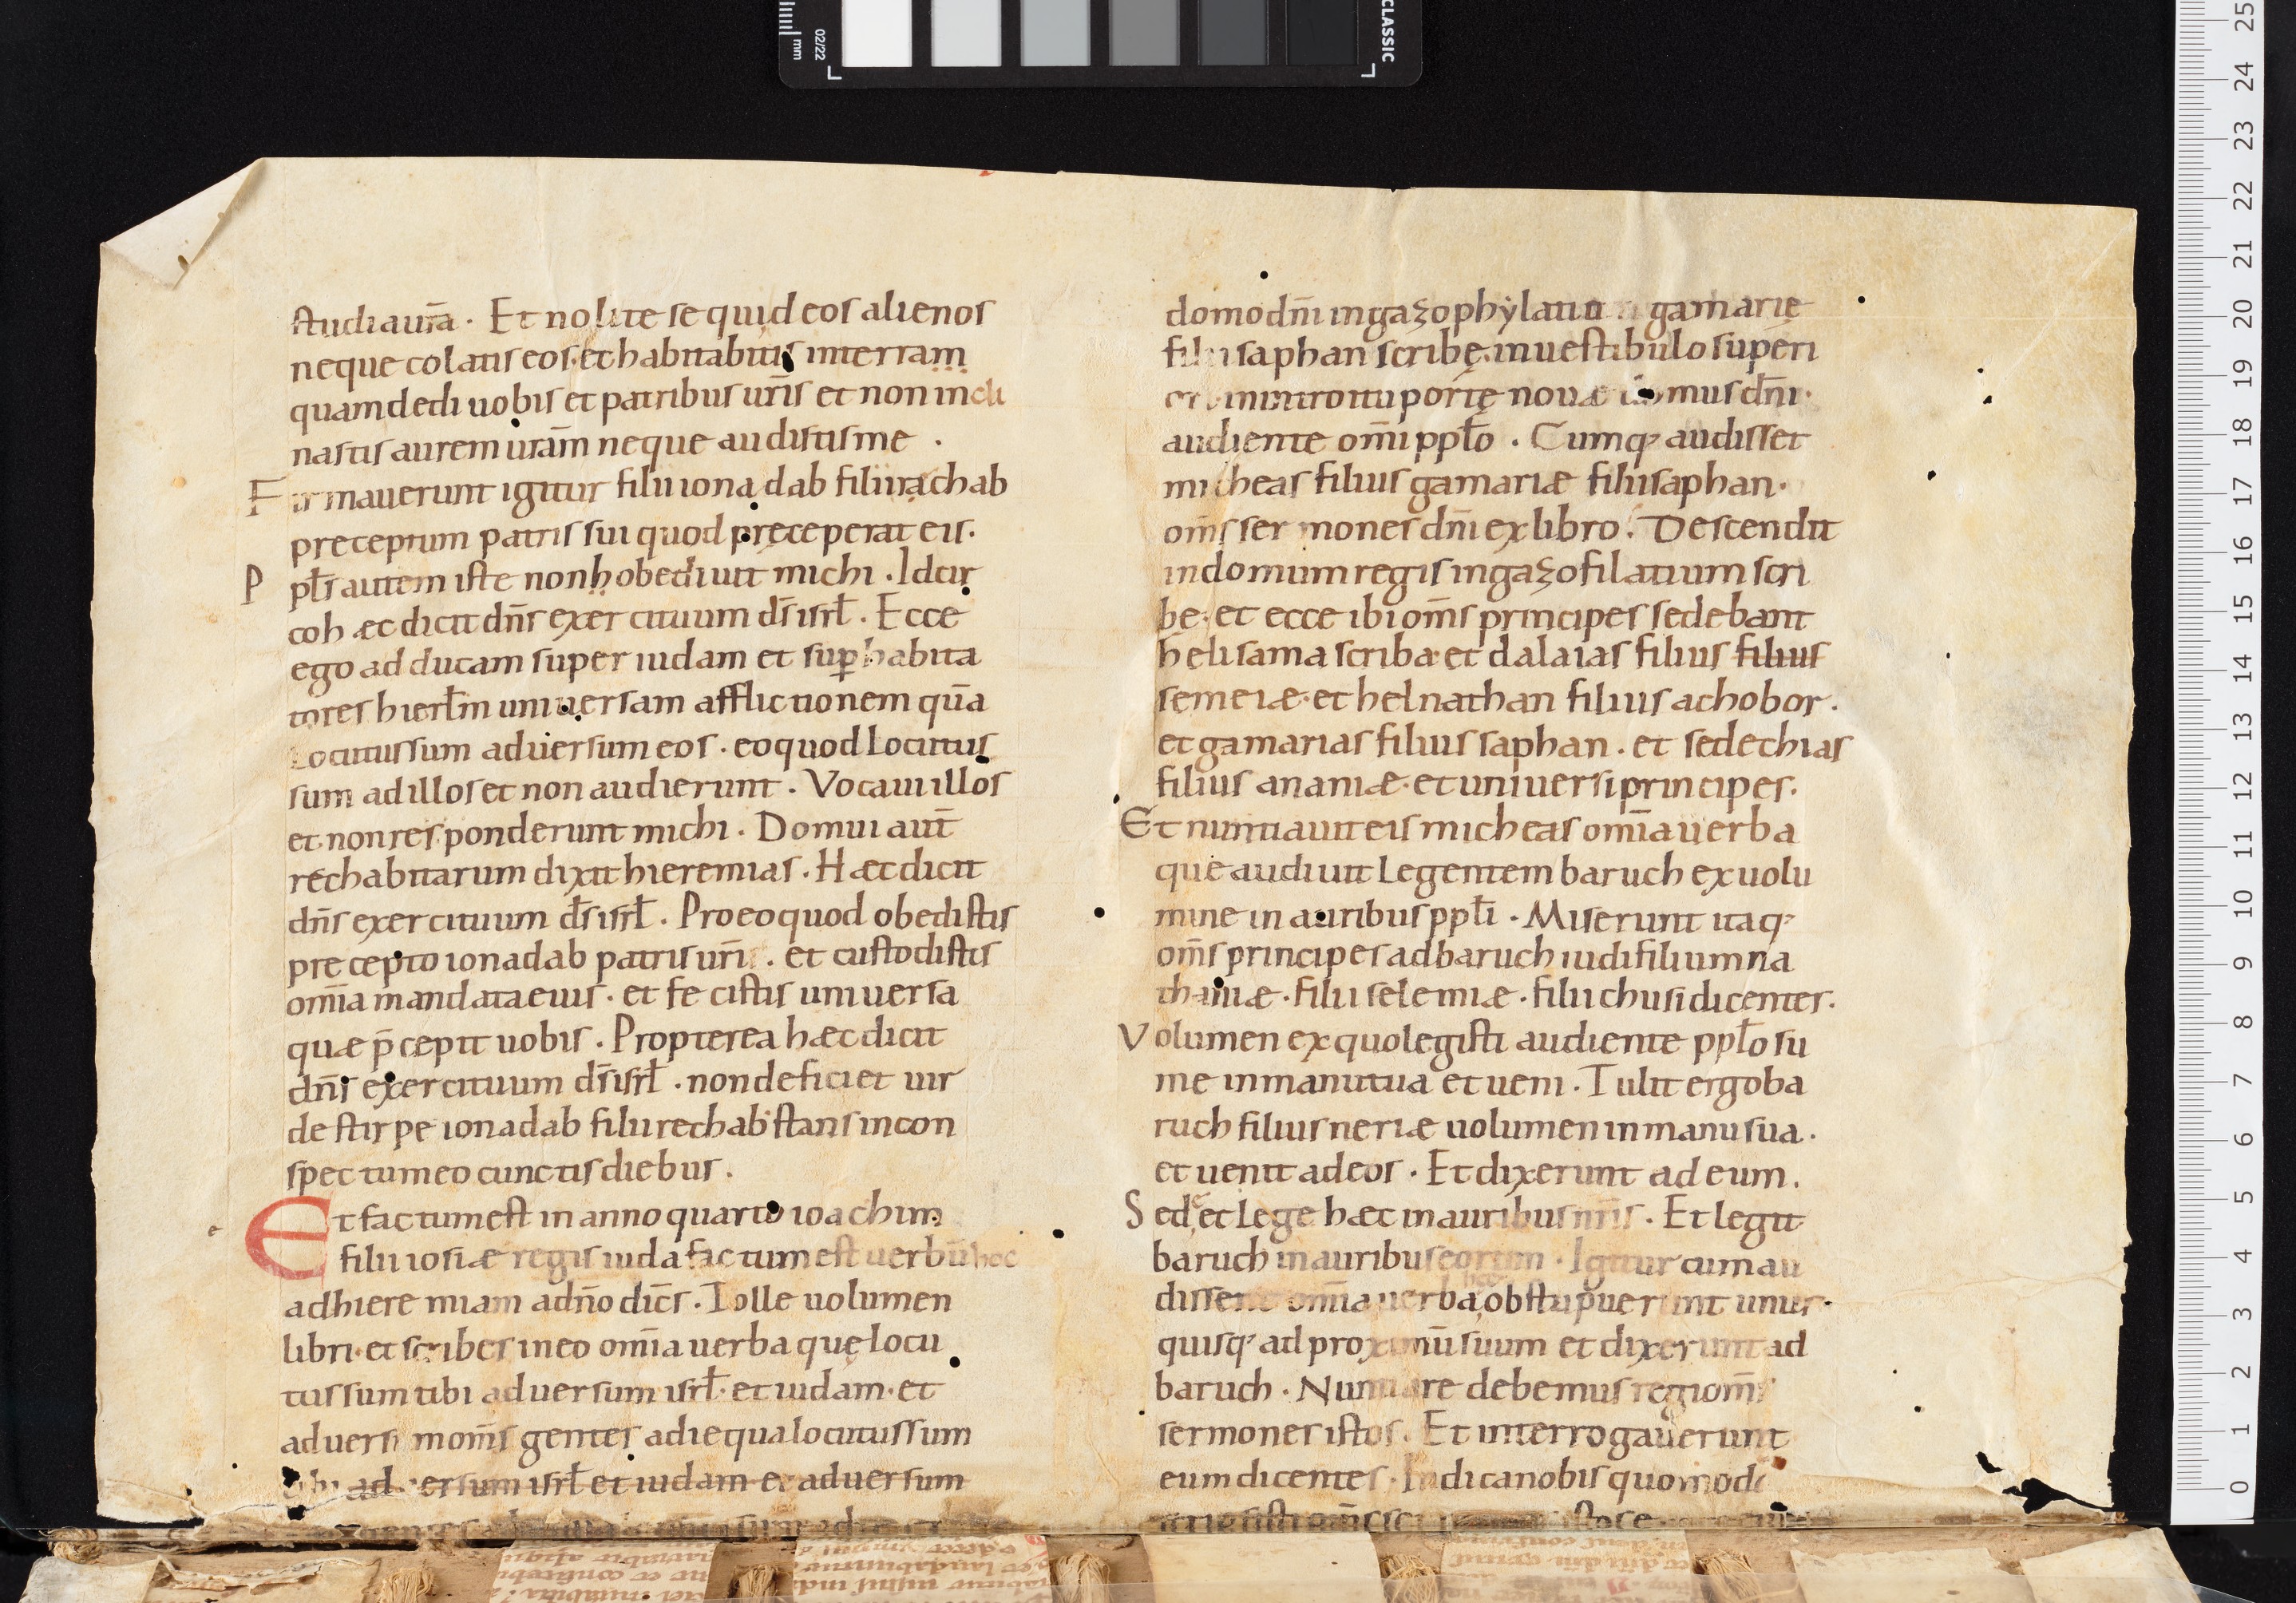 studia ur̄a · Et nolite sequi deos alienos
neque colatis eos · et habitabitis in terram
quam dedi uobis et patribus ur̄is et non incli
nastis aurem urām neque audistis me ·
Firmauerunt igitur filii ionadab filii rachab
preceptum patris sui quod pręceperat eis ·
Ppłs autem iste non hobediuit michi · Idcir
co hæc dicit dn̄s exercituum d̄s isrł · Ecce
ego adducam super iudam et suꝑ habita
tores hierłm uniuersam afflictionem quā
Locutus sum aduersum eos · eo quod Locutus
sum ad illos et non audierunt · Vocaui illos
et non responderunt michi · Domui aut̄
rechabitarum dixit hieremias · Hæc dicit
dn̄s exercituum d̄s isrł · Pro eo quod obedistis
precepto ionadab patris ur̄i · et custodistis
om̄ia mandata eius · et fecistis uniuersa
quæ p̄cepit uobis · Propterea hæc dicit
dn̄s exercituum d̄s isrł · non deficiet uir
de stirpe ionadab filii rechab stans in con
spectu meo cunctis diebus ·
Et factum est in anno quarto ioachim
filii iosiæ regis iuda factum est uerbū hoc
ad hieremiam a dn̄o dicēs · Tolle uolumen
libri · et scribes in eo om̄ia uerba quę locu
tus sum tibi aduersum isrł · et iudam · et
aduersum om̄s gentes a die qua locutus sum
tibi aduersum isrł et iudam et aduersum
domo dn̄i in gazophylatio gamarię
filii saphan scribę · in uestibulo superi
ori · in introitu portę nouæ domus dn̄i ·
audiente om̄i ppło · Cumq; audisset
micheas filius gamariæ filii saphan ·
om̄s sermones dn̄i ex libro · Descendit
in domum regis in gazofilatium scri
be · et ecce ibi om̄s principes sedebant
helisama scriba · et dalaias filius filius
semeiæ · et helnathan filius achobor ·
et gamarias filius saphan · et sedechias
filius ananiæ · et uniuersi principes ·
Et nuntiauit eis micheas om̄ia uerba
que audiuit Legentem baruch ex uolu
mine in auribus ppłi · Miserunt itaq;
om̄s principes ad baruch iudi filium na
thaniæ · filii selemiæ · filii chusi dicentes ·
Volumen ex quo legisti audiente ppło su
me in manu tua et ueni · Tulit ergo ba
ruch filius neriæ uolumen in manu sua ·
et uenit ad eos · Et dixerunt ad eum ·
Sede et Lege hæc in auribus nr̄is · Et legit
baruch in auribus eorum · Igitur cum au
dissent om̄ia uerba hec obstupuerunt unus
quisq; ad proximū suum et dixerunt ad
baruch · Nuntiare debemus regi om̄s
sermones istos · Et interrogauerunt
eum dicentes · Indica nobis quomodo